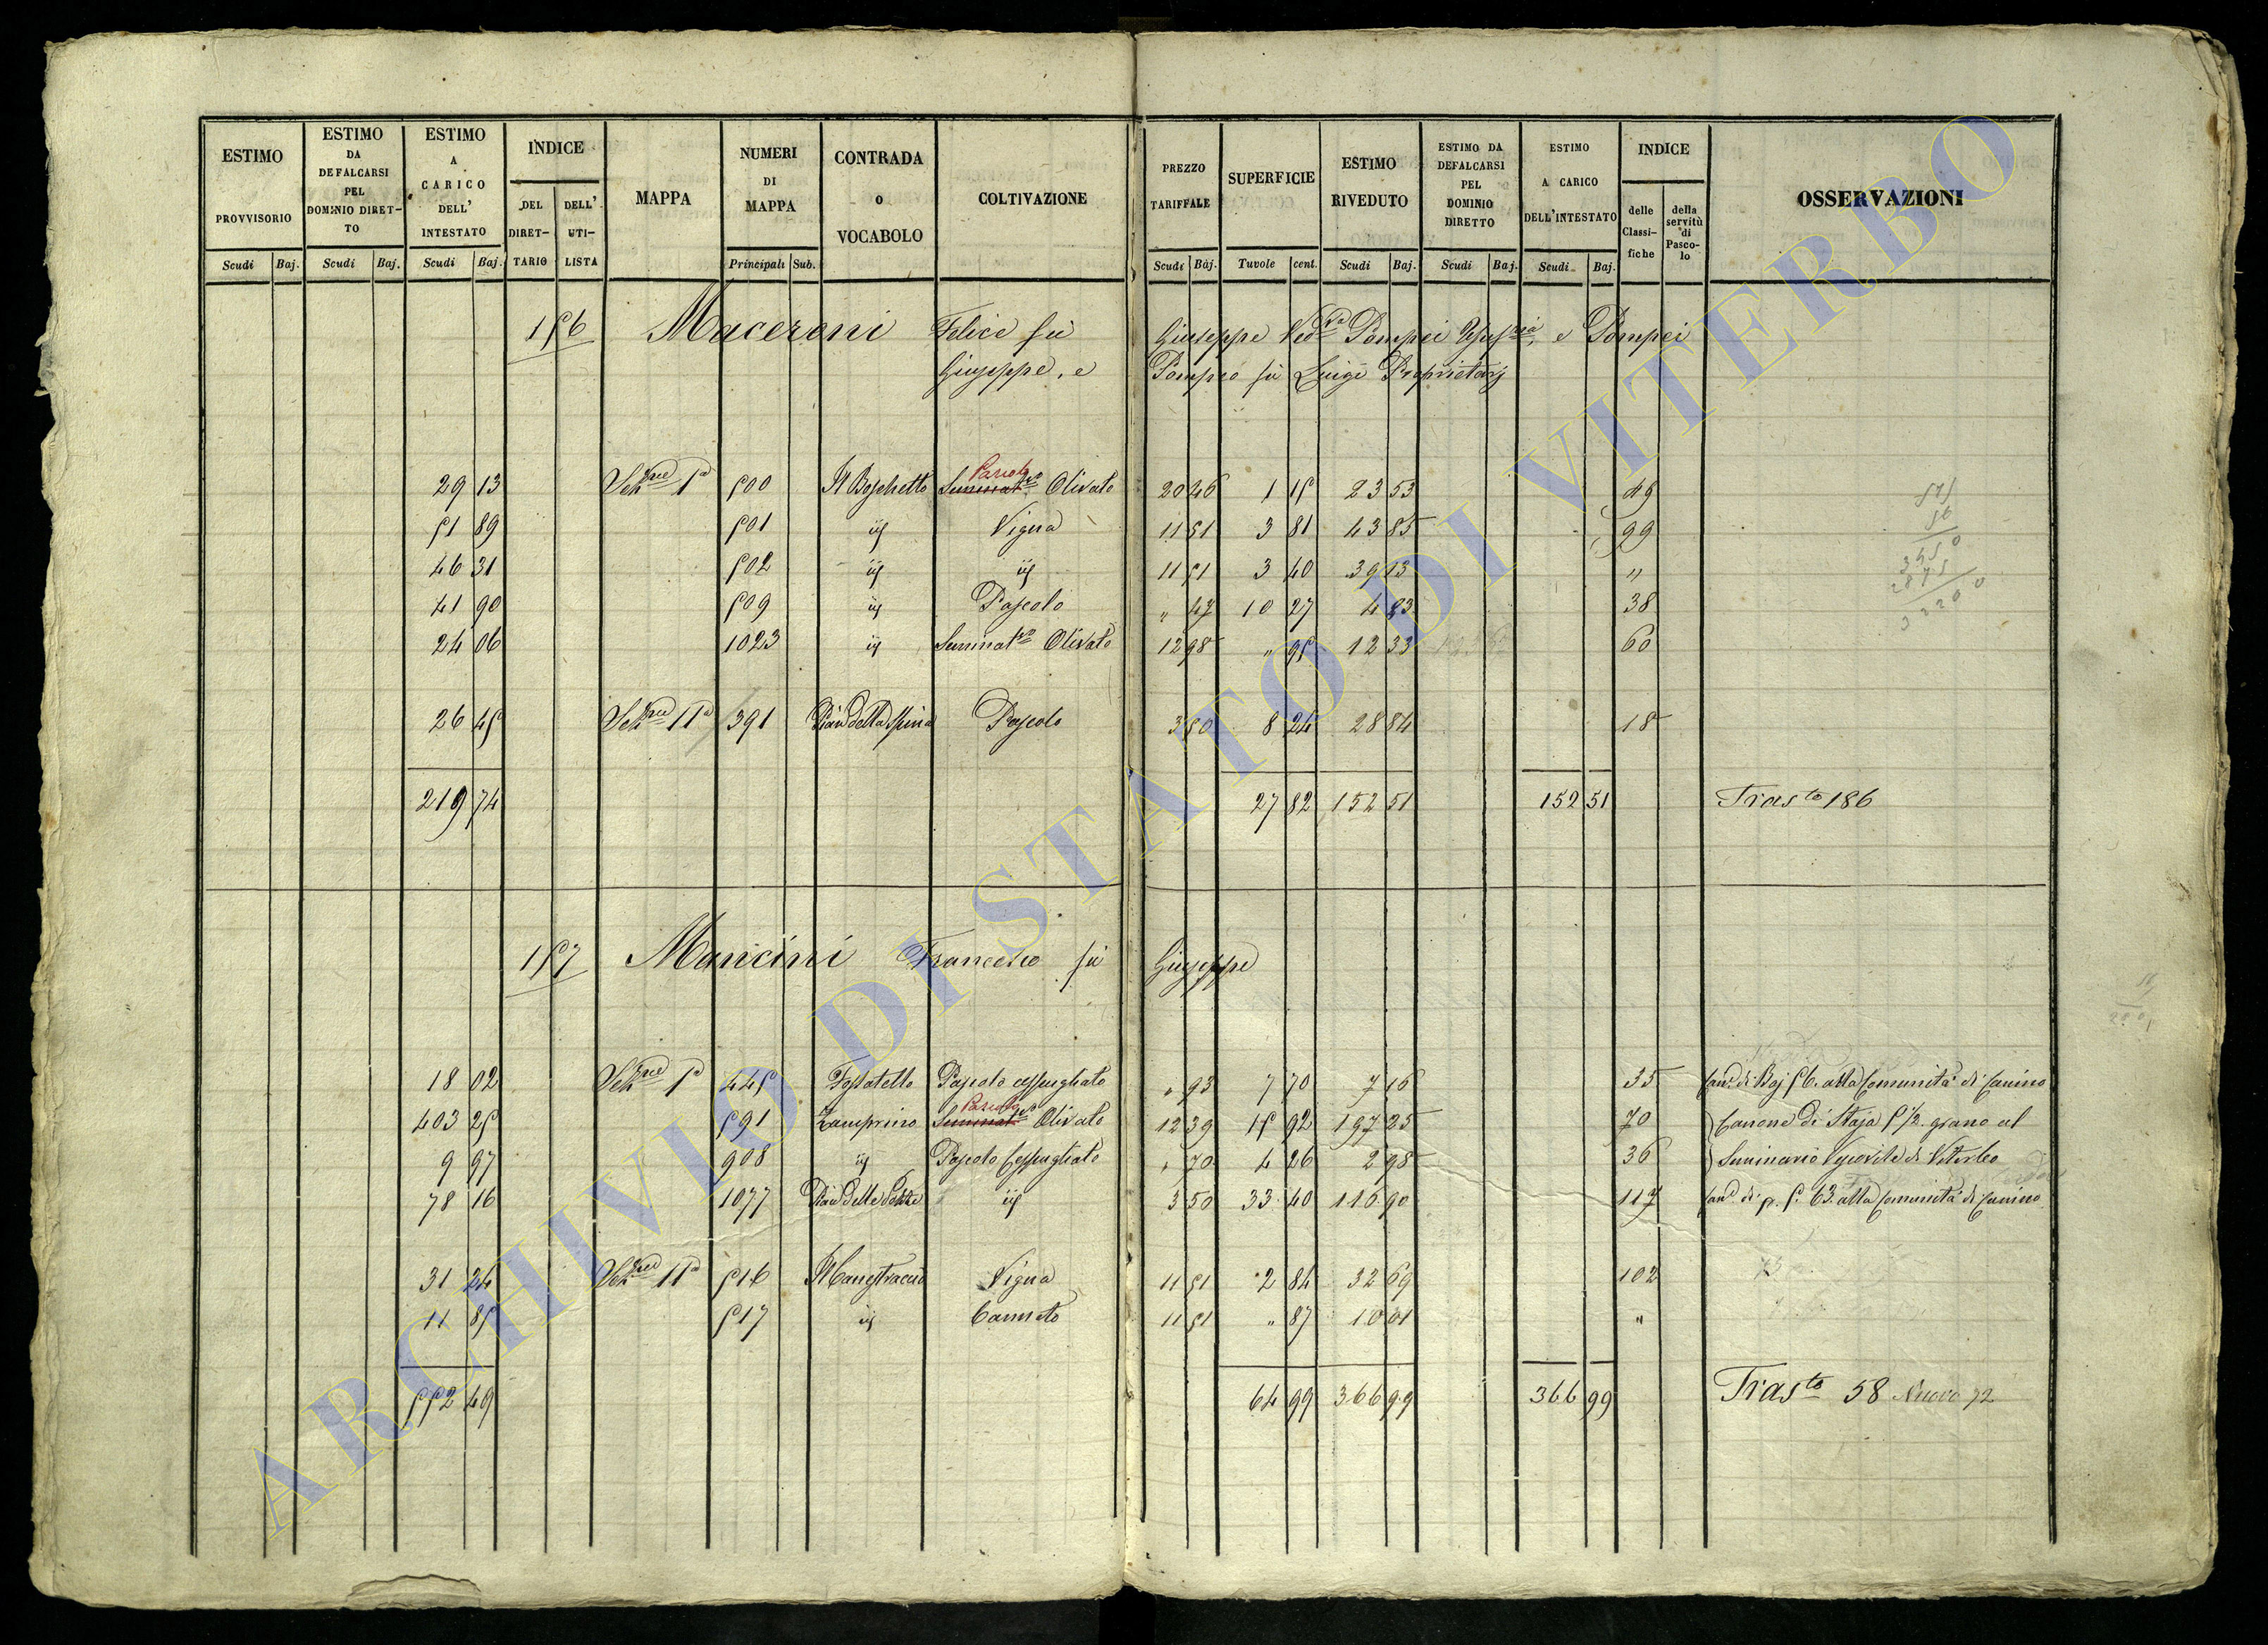 ESTIMO PROVVISORIO
ESTIMO DA DEFALCARSI PEL DOMINIO DIRETTO
ESTIMO A CARICO DELL' INTESTATO
INDICE
DEL DIRETTARIO
DELL' UTILISTA
MAPPA
NUMERI DI MAPPA
CONTRADA O VOCABOLO
COLTIVAZIONE
PREZZO TARIFFALE
SUPERFICIE
ESTIMO RIVEDUTO
ESTIMO DA DEFALCARSI PEL DOMINIO DIRETTO
ESTIMO A CARICO DELL'INTESTATO
INDICE
delle Classifiche
della servitù di Pascolo
OSSERVAZIONI
Scudi Baj. Scudi Baj. Scudi Baj. Principali Sub. Scudi Baj. Tavole cent. Scudi Baj. Scudi Baj. Scudi Baj.
156 Maceroni Felice fù Giuseppe Ved.va Pompei e Pompei
Giuseppe, e Pompeo fù Luigi Proprietarj
Pascolo
29 13 Sez.ne Iª 500 Il Boschetto Seminat.vo Olivato 20 46 1 15 23 53 49
51 89 501 iiş Vigna 11 51 3 81 43 85 99
46 31 502 iiş iiş 11 51 3 40 39 13 "
41 90 509 iiş Pascolo " 47 10 27 4 83 38
24 06 1023 iiş Seminat.vo Olivato 12 98 " 95 12 33 60
26 45 Sez.ne IIª 391 Pian della Spina Pascolo 3 50 8 24 28 84 18
219 74 27 82 152 51 152 51 Tras.to 186
157 Mancini Francesco fù Giuseppe
18 02 Sez.ne Iª 445 Fossatello Pascolo cespugliato " 93 7 70 7 16 35 Can.e di Baj 56. alla Comunità di Canino
Pascolo
403 25 591 Zamprino Seminat.vo Olivato 12 39 15 92 197 25 70 Canone di Staja 5 1/2 grano al
9 97 908 iiş Pascolo Cespugliato " 70 4 26 2 98 36 Seminario Vescovile di Viterbo
78 16 1077 Pian delle iiş 3 50 33 40 116 90 117 Can.e di p. 5. 63. alla Comunità di Canino
31 24 Sez.ne IIª 516 Vigna 11 51 2 84 32 69 102
11 85 517 iiş Canneto 11 51 " 87 10 01 "
552 49 64 99 366 99 366 99 Tras.to 58 Nuovo 72
ARCHIVIO DI STATO DI VITERBO